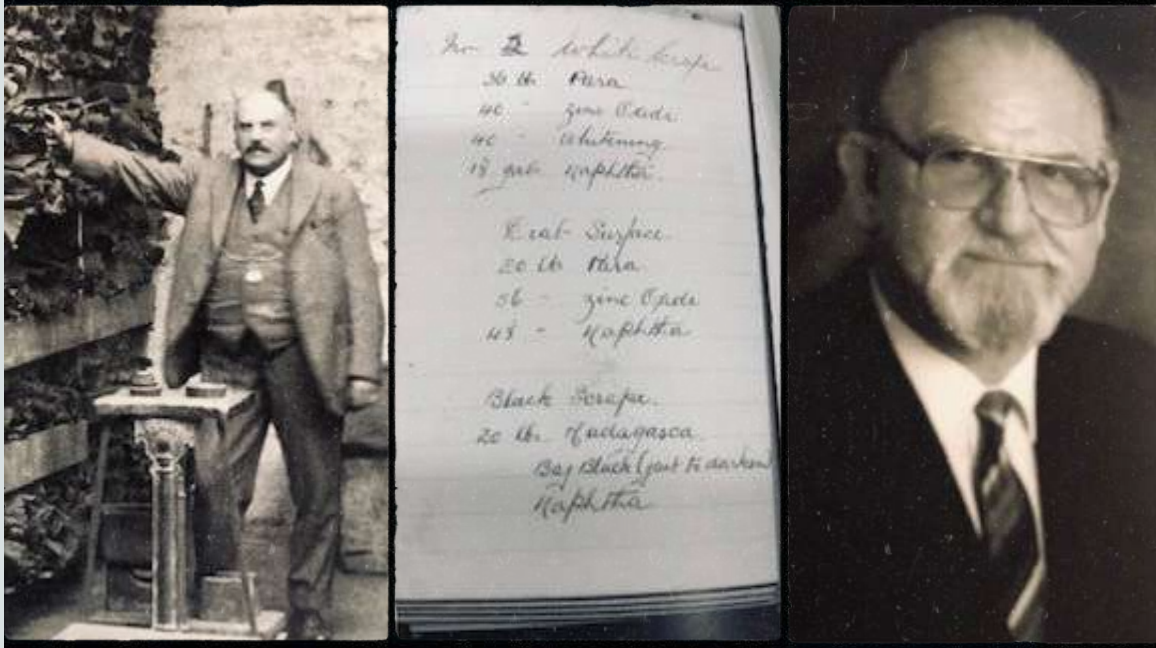 No 2 White Scrape
36 lb Para
40 " Zinc Oxide
40 " Whitening
18 gals Naphtha.
Coat Surface
20 lb Para
56 " Zinc Oxide
48 " Naphtha
Black Scrape.
20 lbs Madagasca
Bag Black (just to darken
Naphtha